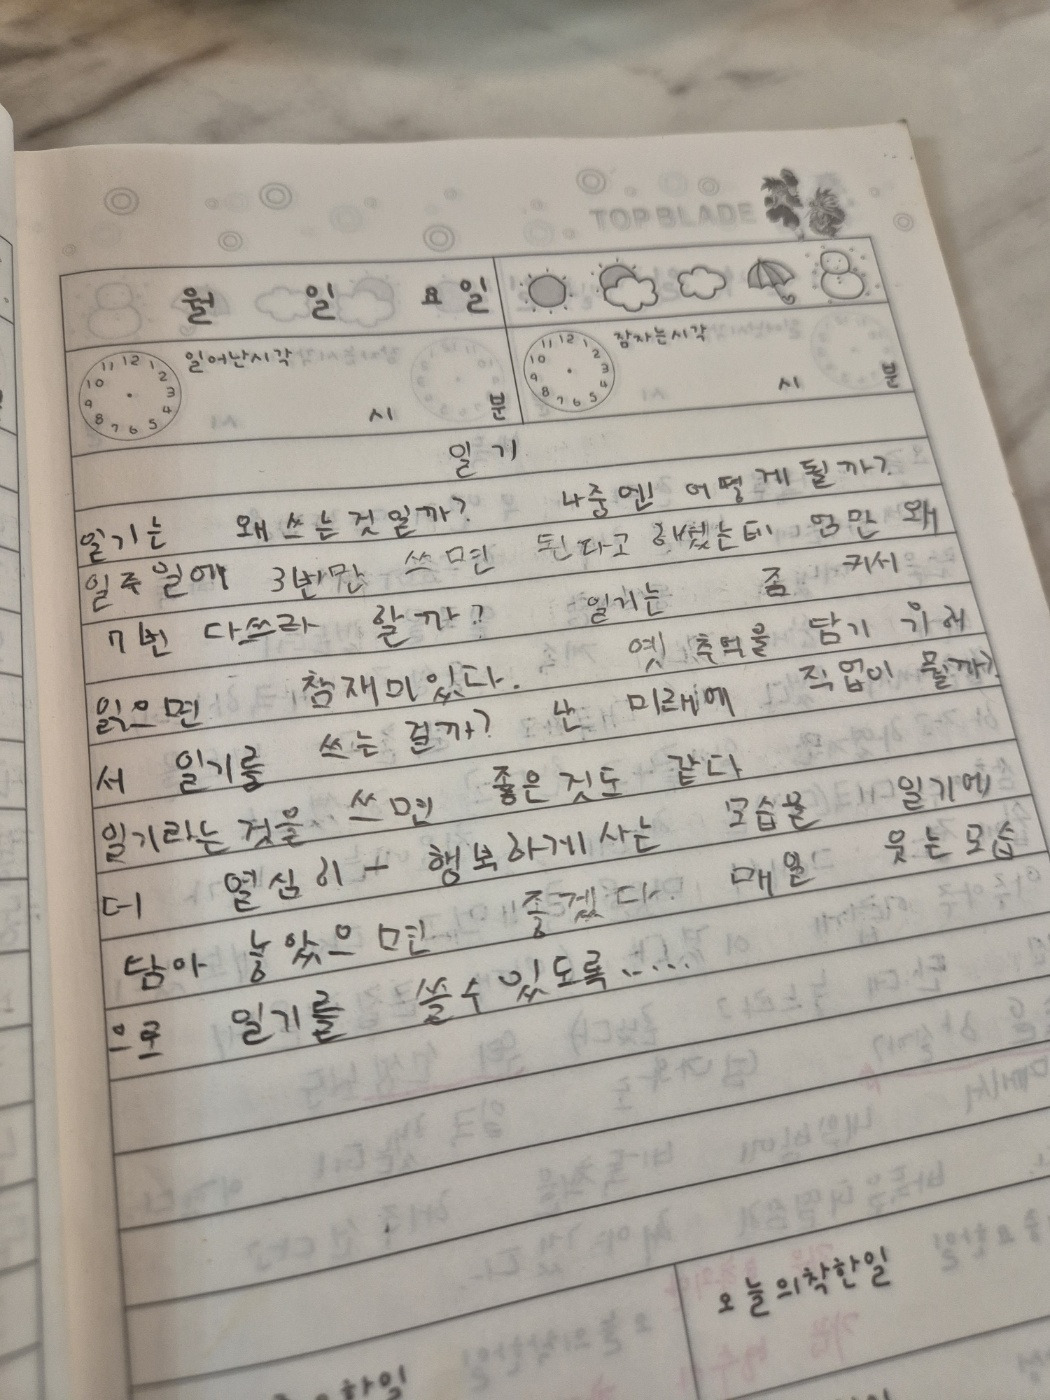 TOP BLADE
월 일 요일
일어난시각 시 분
잠자는시각 시 분
일기
일기는 왜 쓰는 것 일까? 나중엔 어떻게 될까?
일주일에 3번만 쓰면 된다고 하셨는데 엄만 왜
7번 다쓰라 할까? 일기는 좀 커서
읽으면 참재미있다. 옛 추억을 담기 위해
서 일기를 쓰는 걸까? 난 미래에 직업이 뭘까?
일기라는 것을 쓰면 좋은 것도 같다
더 열심히 행복하게 사는 모습을 일기에
담아 놓았으면 좋겠다. 매일 웃는 모습
으로 일기를 쓸 수 있도록.....
오늘의착한일